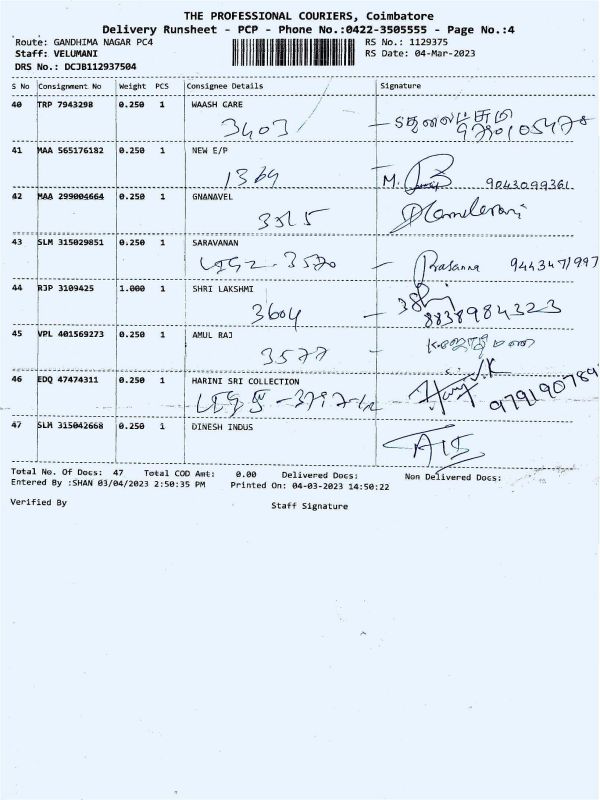 THE PROFESSIONAL COURIERS, Coimbatore
Delivery Runsheet - PCP - Phone No.:0422-3505555 - Page No.:4
Route: GANDHIMA NAGAR PC4 RS No.: 1129375
Staff: VELUMANI RS Date: 04-Mar-2023
DRS No.: DCJB112937504
S No Consignment No Weight PCS Consignee Details Signature
40 TRP 7943298 0.250 1 WAASH CARE
3403
41 MAA 565176182 0.250 1 NEW E/P
1369 M. 9043099361
42 MAA 299004664 0.250 1 GNANAVEL
3515
43 SLM 315029851 0.250 1 SARAVANAN
3570 - Prasanna 9443471997
44 RJP 3109425 1.000 1 SHRI LAKSHMI
3604 - 8838984323
45 VPL 401569273 0.250 1 AMUL RAJ
3577 -
46 EDQ 47474311 0.250 1 HARINI SRI COLLECTION
47 SLM 315042668 0.250 1 DINESH INDUS
Total No. Of Docs: 47 Total COD Amt: 0.00 Delivered Docs: Non Delivered Docs:
Entered By :SHAN 03/04/2023 2:50:35 PM Printed On: 04-03-2023 14:50:22
Verified By Staff Signature